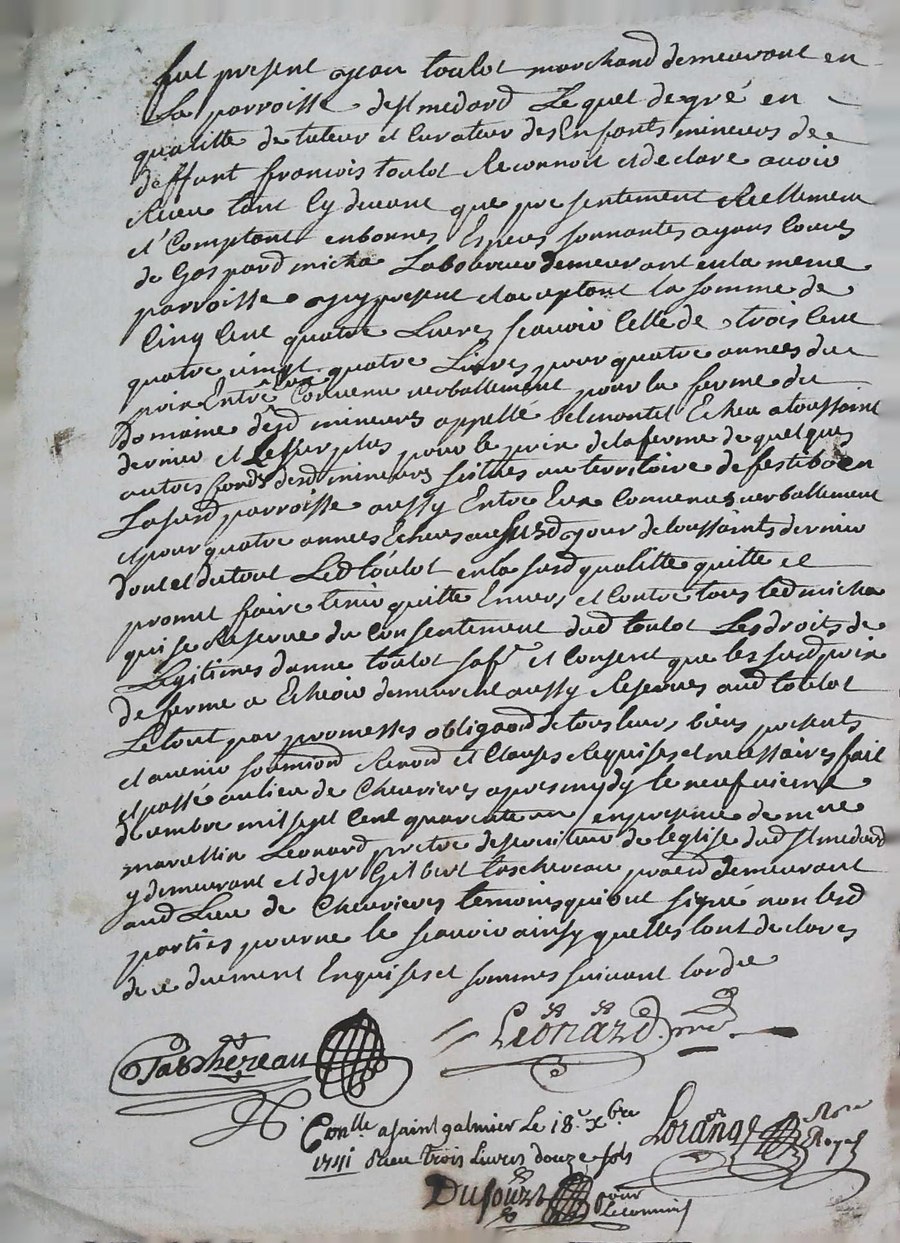 fut present jean toulot marchand demeurant en
La parroisse de st medard Lequel de gré en
qualitte de tuteur et Curateur des Enfants mineurs de
deffunt francois toulot Reconnoit et declare avoir
Receu tant Cy devant que presentement Reellement
et Comptant en bonnes Especes sonnantes ayans Cours
de Gaspard micha Laboureur demeurant en la meme
parroisse a ce present et acceptant la somme de
Cinq Cent quatre Livres scavoir Celle de trois Cent
quatre vingt quatre Livres pour quatre années du
prix Entre Eux Convenu verballement pour la ferme du
Domaine desd mineurs appellé belmontet Echeu a toussaint
dernier et Le surplus pour le prix de la ferme de quelques
autres fonds desd mineurs situes au territoire de
La susd parroisse aussy Entre Eux Convenues verballement
et pour quatre années Echeues au susd jour de toussaints dernier
dont et du tout Led toulot en la susd qualitte quitte et
promet faire tenir quitte Envers et Contre tous led micha
qui se Reserve du Consentement dud toulot Les droits de
Legitimes danne toulot sa fe et Consent que les susd prix
de ferme a Echeoir demeurent aussy Reserves aud toulot
Le tout par promesses obligaond de tous leurs biens presents
et avenir soumiond Renond et Clauses Requises et necessaires fait
et passé au lieu de Chevrieres apres mydy le neufvieme
decembre mil sept Cent quarante un en presence de mre
marcellin Leonard pretre desserviteur de leglise dud st medard
y demeurant et de sr Gilbert taschereau demeurant
aud Lieu de Chevrieres temoins qui ont signé non lesd
parties pour ne le scavoir ainsy quelles lont declares
de ce duement Enquises et sommes suivant lordce
Taschereau Leonard
Conlle a saint galmier Le 18e xbre
1741 Receu trois Livres douze sols
Lorange Nore Royal
Dufourt pour
le commis